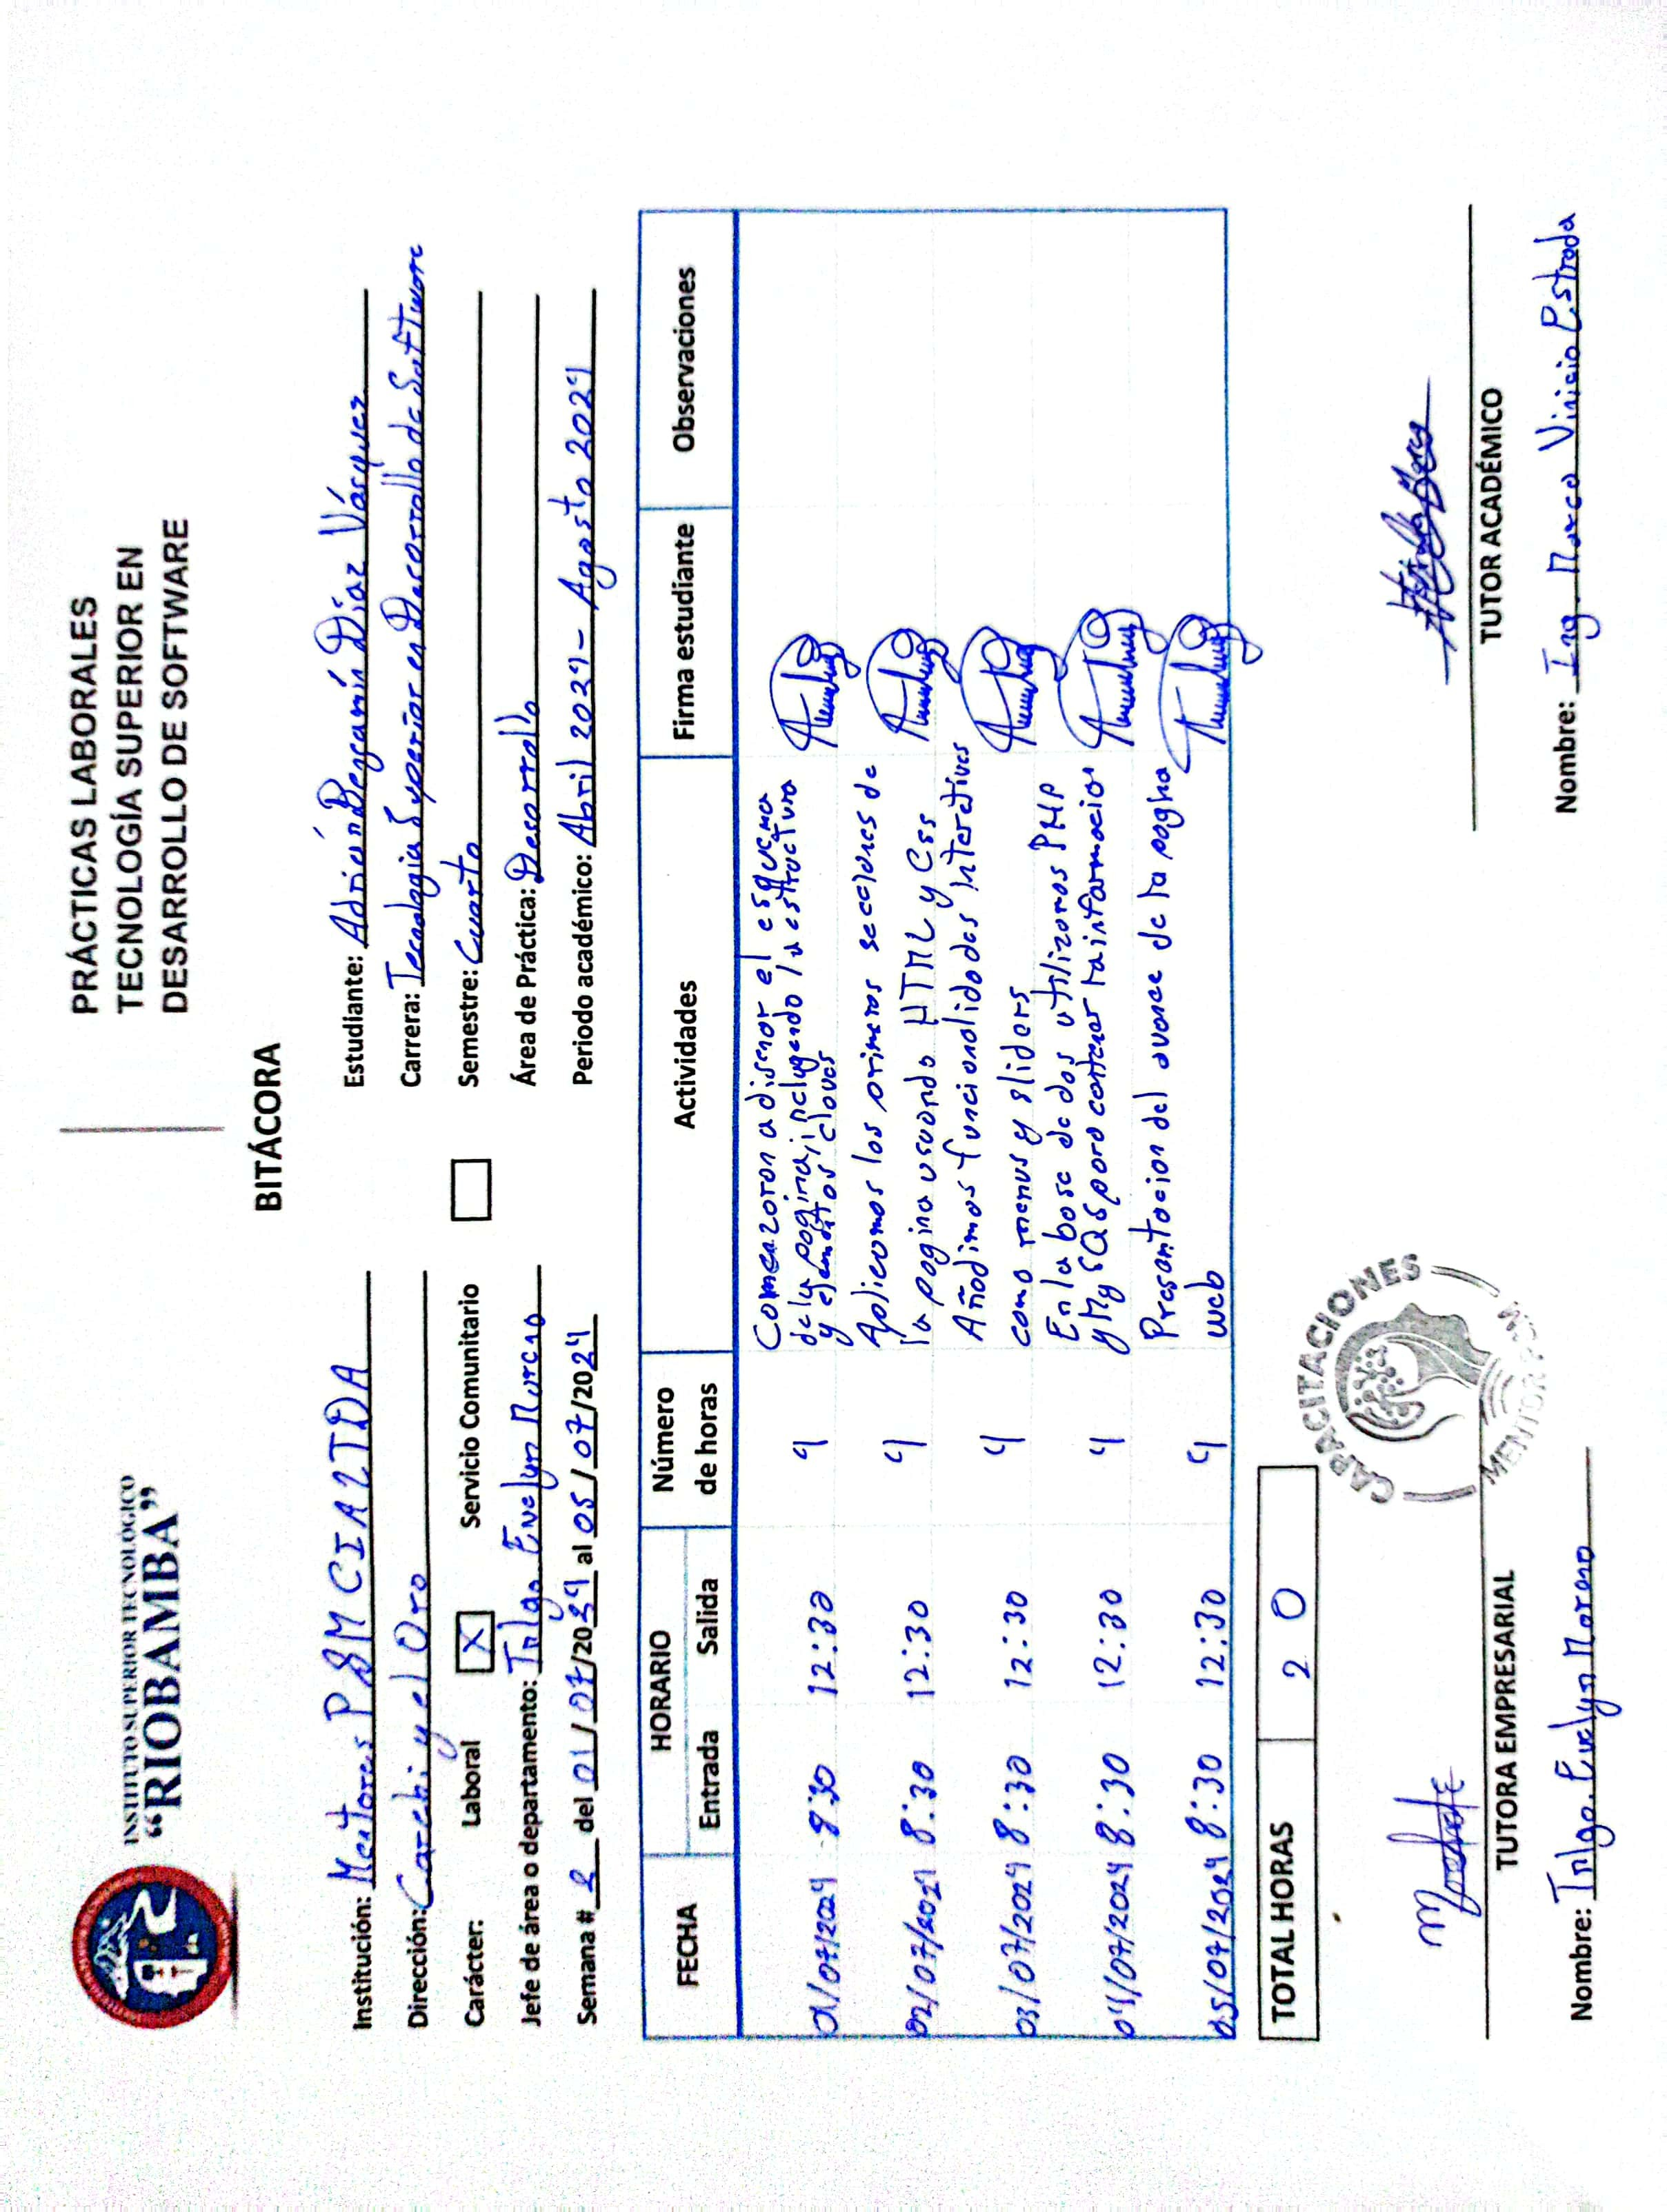 INSTITUTO SUPERIOR TECNOLÓGICO
“RIOBAMBA”
PRÁCTICAS LABORALES
TECNOLOGÍA SUPERIOR EN
DESARROLLO DE SOFTWARE
BITÁCORA
Institución: Mentores PBM CIA LTDA
Dirección: Carchi y el Oro
Carácter: Laboral X Servicio Comunitario
Jefe de área o departamento: Tnlga. Evelyn Moreno
Semana # 2 del 01/07/2024 al 05/07/2024
Estudiante: Adrián Benjamín Díaz Vásquez
Carrera: Tecnologia Superior en Desarrollo de Software
Semestre: Cuarto
Área de Práctica: Desarrollo
Periodo académico: Abril 2024 - Agosto 2024
FECHA HORARIO Número de horas Actividades Firma estudiante Observaciones
Entrada Salida
01/07/2024 8:30 12:30 4 Comenzaron a diseñar el esquema
de la pagina, incluyendo la estructura
y elementos claves
02/07/2024 8:30 12:30 4 Aplicamos las primeras secciones de
la pagina usando HTML y Css
03/07/2024 8:30 12:30 4 Añadimos funcionalidades interativas
como menus y sliders
04/07/2024 8:30 12:30 4 En la base de dos utilizamos PHP
y MySQL para contener la informacion
05/07/2024 8:30 12:30 4 Presentacion del avance de la pagina
web
TOTAL HORAS 20
CAPACITACIONES
TUTORA EMPRESARIAL
Nombre: Tnlga. Evelyn Moreno
TUTOR ACADÉMICO
Nombre: Ing. Marco Vinicio Estrada